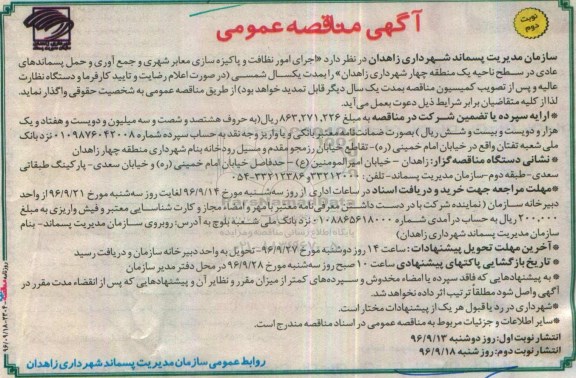 نوبت دوم
آگهی مناقصه عمومی
سازمان مدیریت پسماند شهرداری زاهدان در نظر دارد «اجرای امور نظافت و پاکیزه سازی معابر شهری و جمع آوری و حمل پسماندهای
عادی در سطح ناحیه یک منطقه چهار شهرداری زاهدان» را بمدت یکسال شمسی (در صورت اعلام رضایت و تایید کارفرما و دستگاه نظارت
عالیه و پس از تصویب کمیسیون مناقصه بمدت یک سال دیگر قابل تمدید خواهد بود) از طریق مناقصه عمومی به شخصیت حقوقی واگذار نماید.
لذا از کلیه متقاضیان برابر شرایط ذیل دعوت بعمل می‌آید.
• ارایه سپرده یا تضمین شرکت در مناقصه به مبلغ ۸۶۳,۲۷۱,۲۲۶ ریال(به حروف هشتصد و شصت و سه میلیون و دویست و هفتاد و یک
هزار و دویست و بیست و شش ریال) بصورت ضمانت نامه معتبر بانکی و یا واریز وجه نقد به حساب سپرده شماره ۰۱۰۹۸۷۶۰۴۲۰۰۸ نزد بانک
ملی شعبه تفتان واقع در خیابان امام خمینی (ره)- تقاطع خیابان رزمجو مقدم و مسیل رودخانه بنام شهرداری منطقه چهار زاهدان
• نشانی دستگاه مناقصه گزار: زاهدان - خیابان امیرالمومنین (ع) - حدفاصل خیابان امام خمینی (ره) و خیابان سعدی- پارکینگ طبقاتی
سعدی-طبقه دوم-سازمان مدیریت پسماند- تلفن: ۳۳۲۱۲۰۰۲و۳۳۲۱۲۳۸۶-۰۵۴
• مهلت مراجعه جهت خرید و دریافت اسناد در ساعات اداری از روز سه‌شنبه مورخ ۹۶/۹/۱۴ لغایت روز سه‌شنبه مورخ ۹۶/۹/۲۱ از واحد
دبیرخانه سازمان (نماینده شرکت با در دست داشتن معرفی نامه معتبر با مهر و امضاء مجاز و کارت شناسایی معتبر و فیش واریزی به مبلغ
۲۰۰,۰۰۰ ریال به حساب درآمدی شماره ۰۱۰۸۸۶۵۶۱۸۰۰۰ نزد بانک ملی شعبه بلوچ به آدرس: روبروی سازمان مدیریت پسماند- بنام
سازمان مدیریت پسماند شهرداری زاهدان)
• آخرین مهلت تحویل پیشنهادات: ساعت ۱۴ روز دوشنبه مورخ ۹۶/۹/۲۷- تحویل به واحد دبیرخانه سازمان و دریافت رسید
• تاریخ بازگشایی پاکتهای پیشنهادی ساعت ۱۰ صبح روز سه‌شنبه مورخ ۹۶/۹/۲۸ در محل دفتر مدیر سازمان
• به پیشنهادهایی که فاقد سپرده یا امضاء مخدوش و سپرده‌های کمتر از میزان مقرر و نظایر آن و پیشنهادهایی که پس از انقضاء مدت مقرر در
آگهی واصل شود مطلقاً ترتیب اثر داده نخواهد شد.
• شهرداری در رد یا قبول هر یک از پیشنهادات مختار است.
• سایر اطلاعات و جزئیات مربوط به مناقصه عمومی در اسناد مناقصه مندرج است.
انتشار نوبت اول: روز دوشنبه ۹۶/۹/۱۳
انتشار نوبت دوم: روز شنبه ۹۶/۹/۱۸
روابط عمومی سازمان مدیریت پسماند شهرداری زاهدان